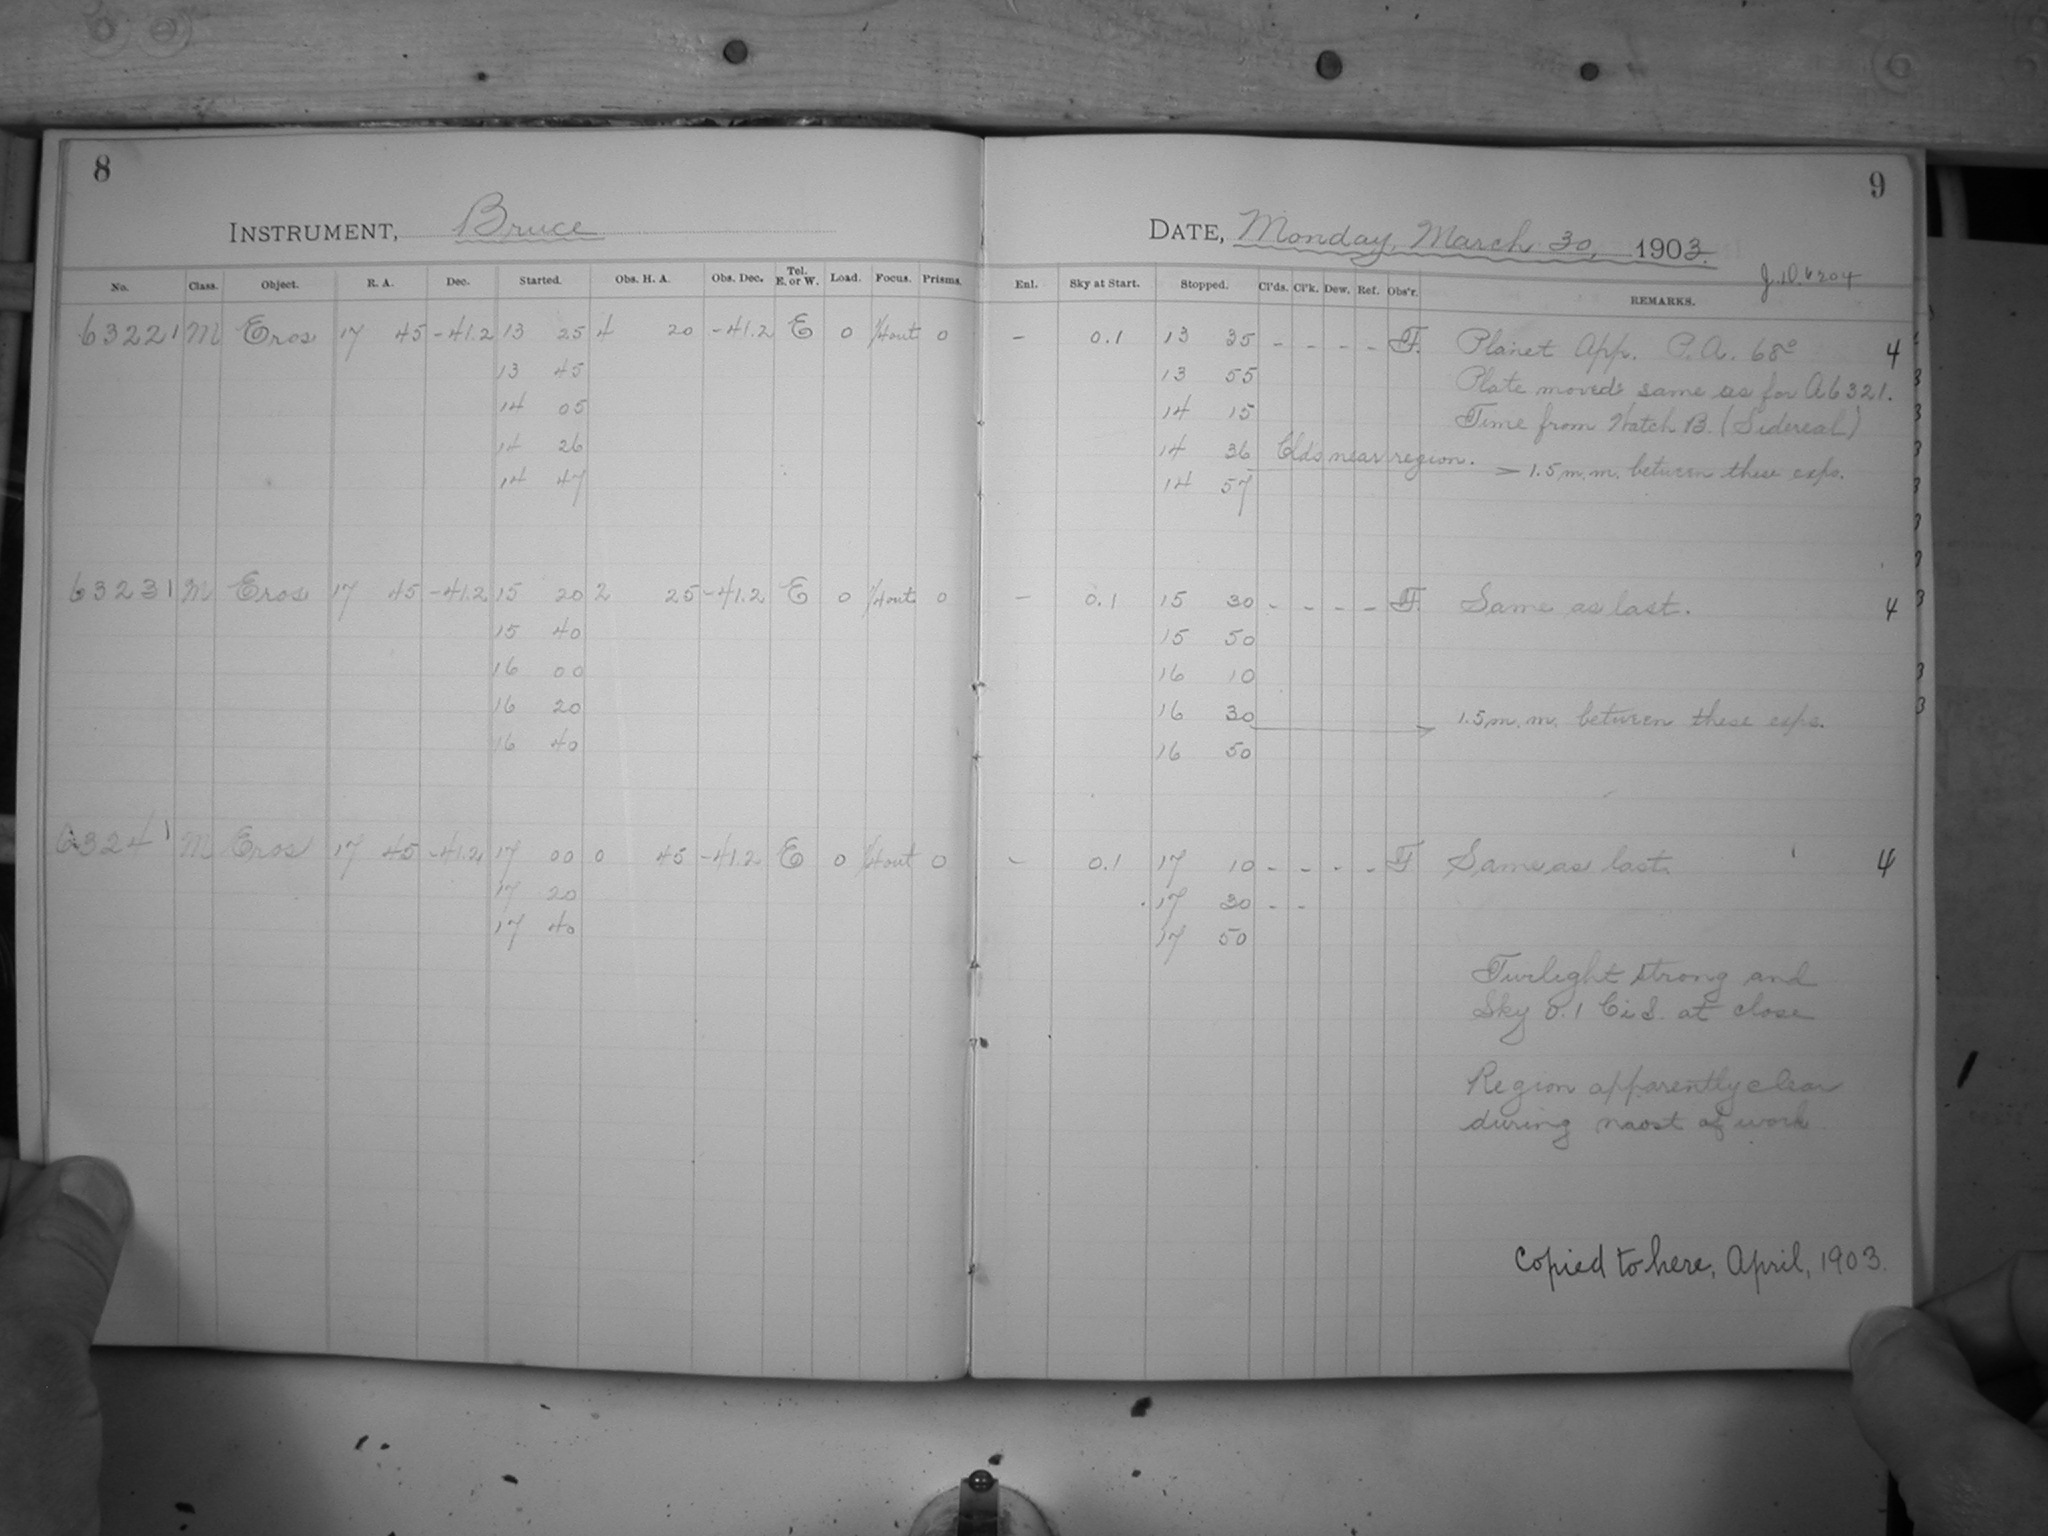 8
INSTRUMENT, Bruce
No. Class. Object. R. A. Dec. Started. Obs. H. A. Obs. Dec. Tel. E. or W. Load. Focus. Prisms.
63221 M Eros 17 45 -41.2 13 25 4 20 -41.2 E 0 1/4 out 0
13 45
14 05
14 26
14 47
63231 M Eros 17 45 -41.2 15 20 2 25 -41.2 E 0 1/4 out 0
15 40
16 00
16 20
16 40
63241 M Eros 17 45 -41.2 17 00 0 45 -41.2 E 0 1/4 out 0
17 20
17 40
9
DATE, Monday, March 30, 1903.
J.D. 6204
Enl. Sky at Start. Stopped. Cl'ds. Cl'k. Dew. Ref. Obs'r. REMARKS.
– 0.1 13 35 - - - - F. Planet App. P.A. 68° 4
13 55 Plate moved same as for A6321.
14 15 Time from Watch B. (Sidereal)
14 36 Clds near region. > 1.5 m.m. between these exps.
14 57
– 0.1 15 30 - - - - F. Same as last. 4
15 50
16 10
16 30 1.5 m.m. between these exps.
16 50
– 0.1 17 10 - - - - F Same as last. 4
17 30 - -
17 50
Twilight strong and
Sky 0.1 Ci S. at close
Region apparently clear
during most of work
Copied to here, April, 1903.